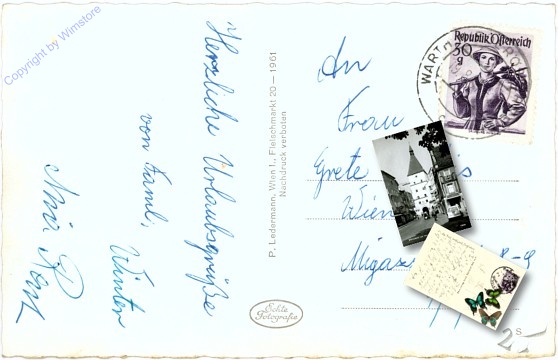 Copyright by Wimstore
Herzliche Urlaubsgrüße
von Faml.
Winter
P. Ledermann, Wien I., Fleischmarkt 20 – 1961
Nachdruck verboten
Echte
Fotografie
Republik Österreich
30
g
WART
An
Frau
Grete
Wien
Migaz
8-9
2
S